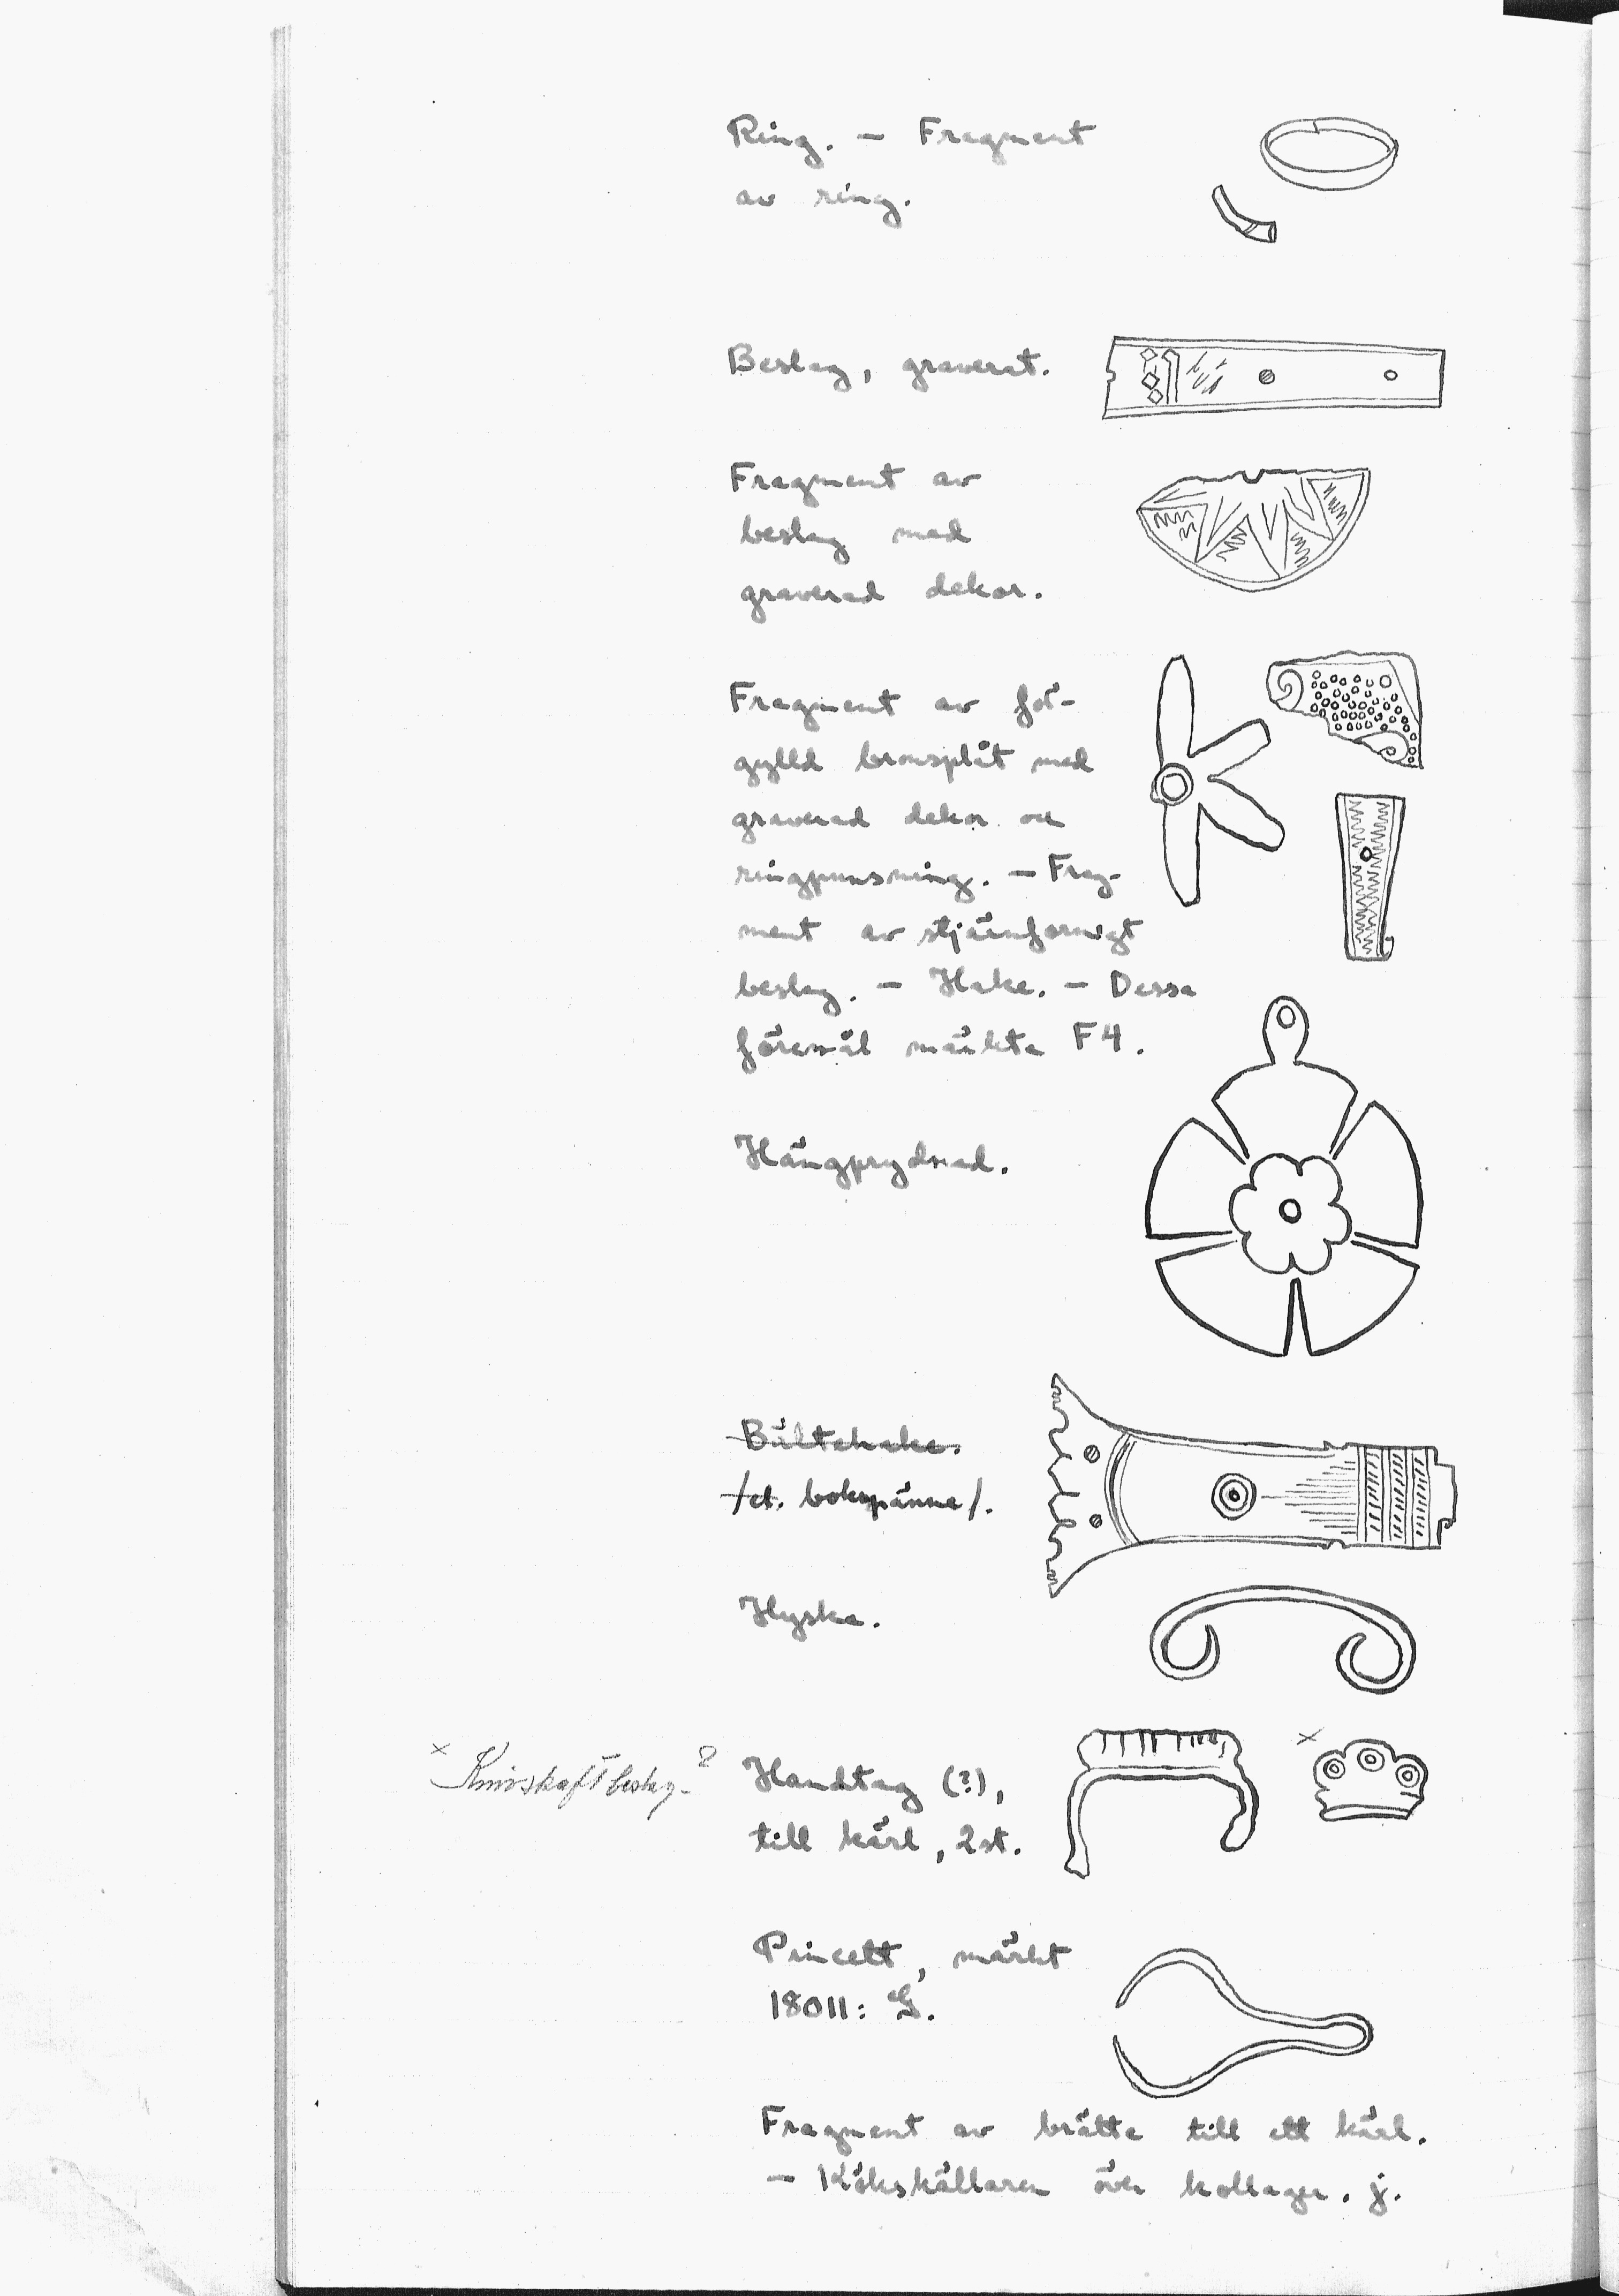 Ring. – Fragment
av ring.
Beslag, graverat.
Fragment av
beslag med
graverad dekor.
Fragment av för-
gylld bronsplåt med
graverad dekor och
ringpunsning. – Frag-
ment av stjärnformigt
beslag. – Hake. – Dessa
föremål märkta F4.
Hängprydnad.
Bältehake.
/el. bokspänne/.
Hyska.
x Knivskaftbeslag? x
Handtag (?),
till kärl, 2st.
Pincett, märkt
18011: G.
Fragment av brätte till ett kärl.
– Kökskällaren över kollager. j.